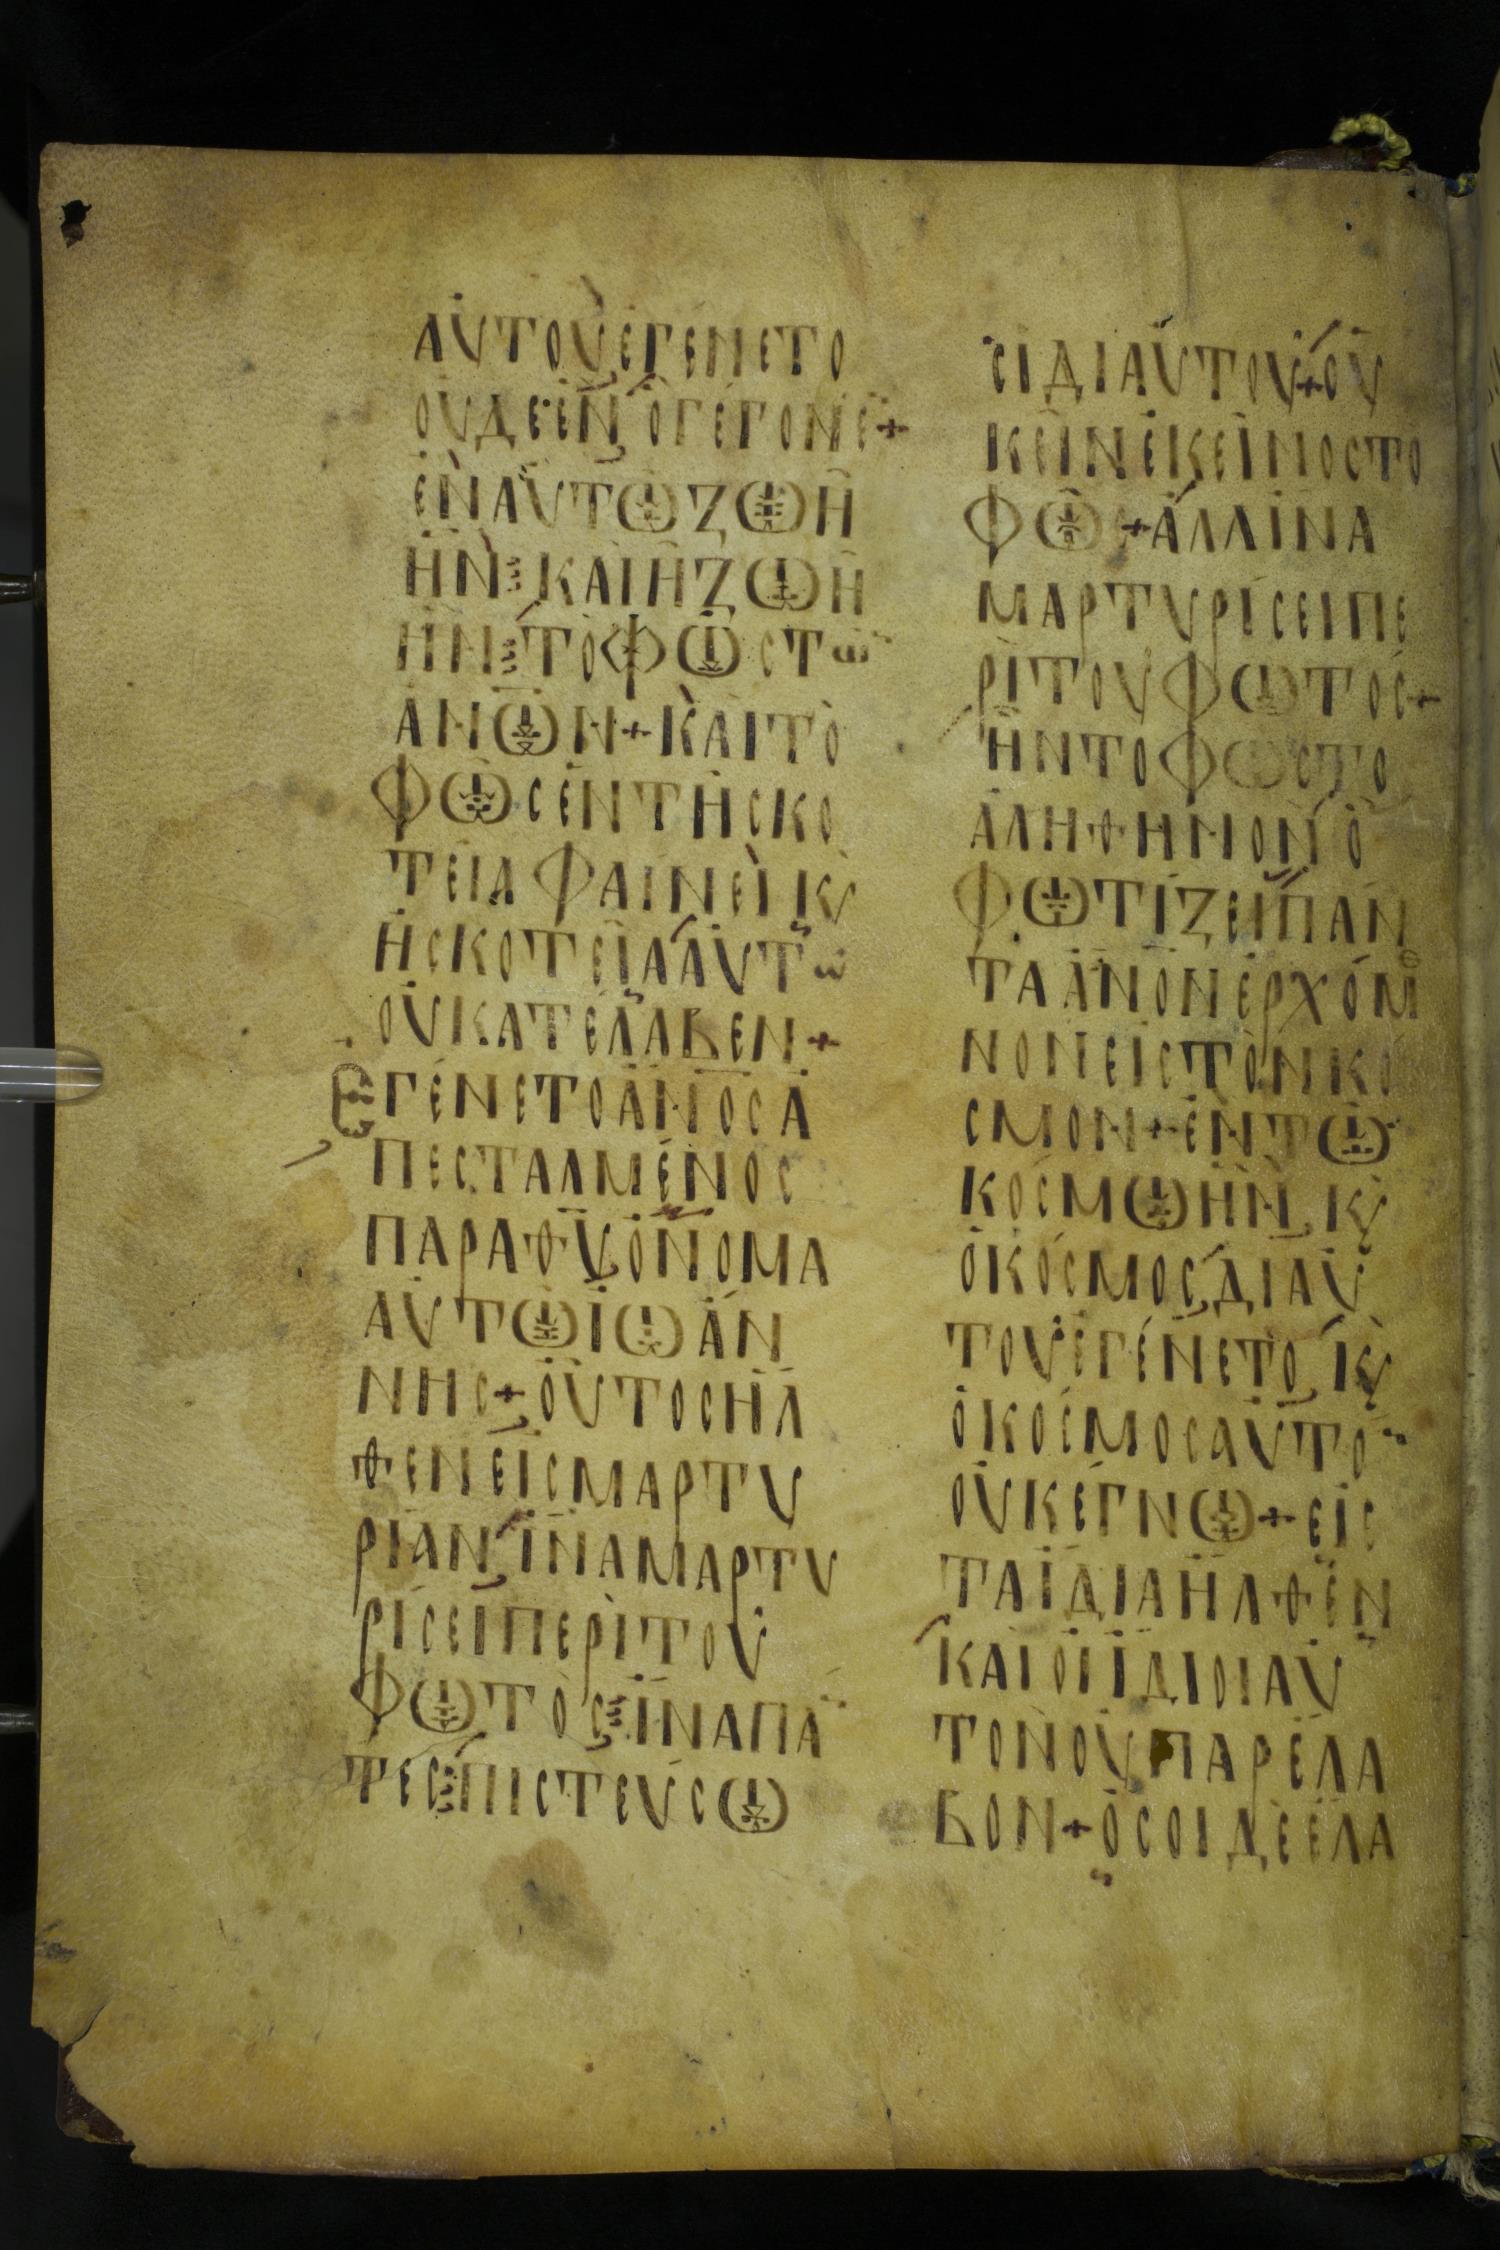 ΑΥΤΟΥΕΓΕΝΕΤΟ
ΟΥΔΕΕΝ ΟΓΕΓΟΝΕ+
ΕΝΑΥΤΩΖΩΗ
ΗΝ ⁝ ΚΑΙΗΖΩΗ
ΗΝ ⁝ ΤΟΦΩΣΤω̅
ΑΝΩΝ+ΚΑΙΤΟ
ΦΩCΕΝΤΗCΚΟ
ΤΕΙΑΦΑΙΝΕΙ Κ̀
ΗCΚΟΤΕΙΑΑΥΤω
ΟΥΚΑΤΕΛΑΒΕΝ+
ΕΓΕΝΕΤΟΑΝΟCΑ
ΠΕCΤΑΛΜΕΝΟC
ΠΑΡΑΘΥΟΝΟΜΑ
ΑΥΤΩΙΩΑΝ
ΝΗC+ΟΥΤΟCΗΛ
ΘΕΝΕΙCΜΑΡΤΥ
ΡΙΑΝ ΙΝΑΜΑΡΤΥ
ΡΙCΕΙΠΕΡΙΤΟΥ
ΦΩΤΟC ⁝ ΙΝΑΠΑ
ΤΕC ⁝ ΠΙCΤΕΥCΩ
CΙΔΙΑΥΤΟΥ+ΟΥ
ΚΕΙΝΕΚΕΙΝΟCΤΟ
ΦΩ+ΑΛΛΙΝΑ
ΜΑΡΤΥΡΙCΕΙΠΕ
ΡΙΤΟΥΦΩΤΟC+
ΗΝΤΟΦΩCΤΟ
ΑΛΗΘΗΝΟΝ Ο
ΦΩΤΙΖΕΙΠΑΝ
ΤΑΑΝΟΝΕΡΧΟΜε
ΝΟΝΕΙCΤΟΝΚΟ
CΜΟΝ+ΕΝΤΩ
ΚΟCΜΩΗΝ Κ̀
ΟΚΟCΜΟC ΔΙΑΥ
ΤΟΥΕΓΕΝΕΤΟ Κ̀
ΟΚΟCΜΟCΑΥΤΟ
ΟΥΚΕΓΝΩ+ΕΙC
ΤΑΙΔΙΑΗΛΘΕΝ
ΚΑΙΟΙΙΔΙΟΙΑΥ
ΤΟΝΟΥΠΑΡΕΛΑ
ΒΟΝ+ΟCΟΙΔΕΕΛΑ